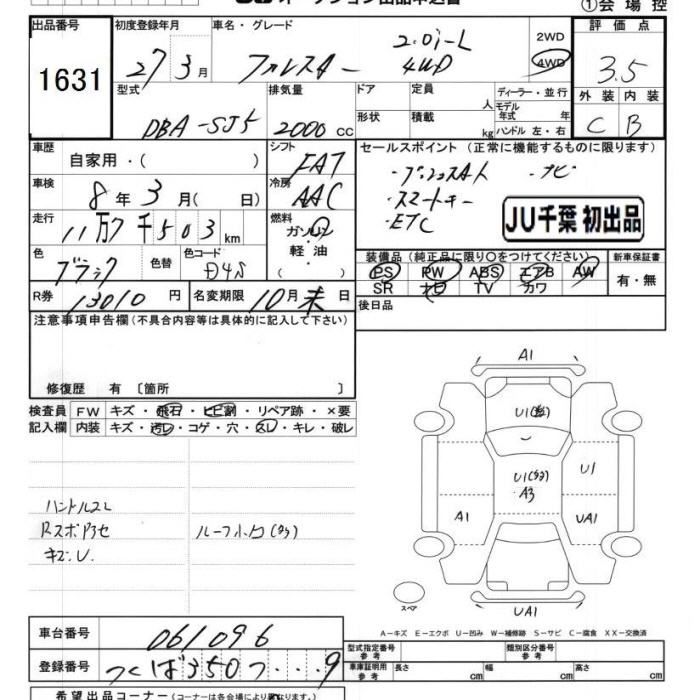 ①会場控
出品番号 初度登録年月 車名・グレード 評価点
1631 27年3月 フォレスター 2.0i-L 4WD 2WD 4WD 3.5
型式 排気量 ドア 定員 人 ディーラー・並行 外装 内装
DBA-SJ5 2000 cc 形状 積載 kg モデル年式 年 ハンドル 左・右 C B
車歴 自家用・( ) シフト FAT セールスポイント (正常に機能するものに限ります)
車検 8年3月( 日) 冷房 AAC ・プッシュスタート ・ナビ
・スマートキー
・ETC
JU千葉 初出品
走行 11万7千503km 燃料 ガソリン・軽油
色 ブラック 色替 色コード D4S
装備品 (純正品に限り○をつけてください) 新車保証書
PS PW ABS エアB AW 有・無
SR ナビ TV カワ
R券 13010円 名変期限 10月末日 後日品
注意事項申告欄(不具合内容等は具体的に記入して下さい)
修復歴 有 〔箇所 〕
検査員 FW キズ・飛石・ヒビ割・リペア跡・×要
記入欄 内装 キズ・汚レ・コゲ・穴・スレ・キレ・破レ
ハンドルスレ
キズ.U. ルーフ
A1
U1
U1
A3
U1
A1
UA1
UA1
スペア
A−キズ E−エクボ U−凹み W−補修跡 S−サビ C−腐食 XX−交換済
車台番号 061096
登録番号 つくば 350 つ ・・・9
型式指定番号 参考 類別区分番号 参考
車庫証明用 参考 長さ cm 幅 cm 高さ cm
希望出品コーナー(コーナーは各会場により異なります。)